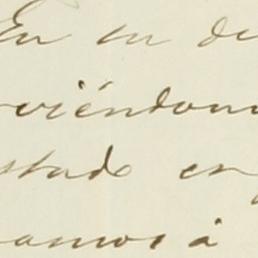 En un de
viéndom
stado en
vamos á